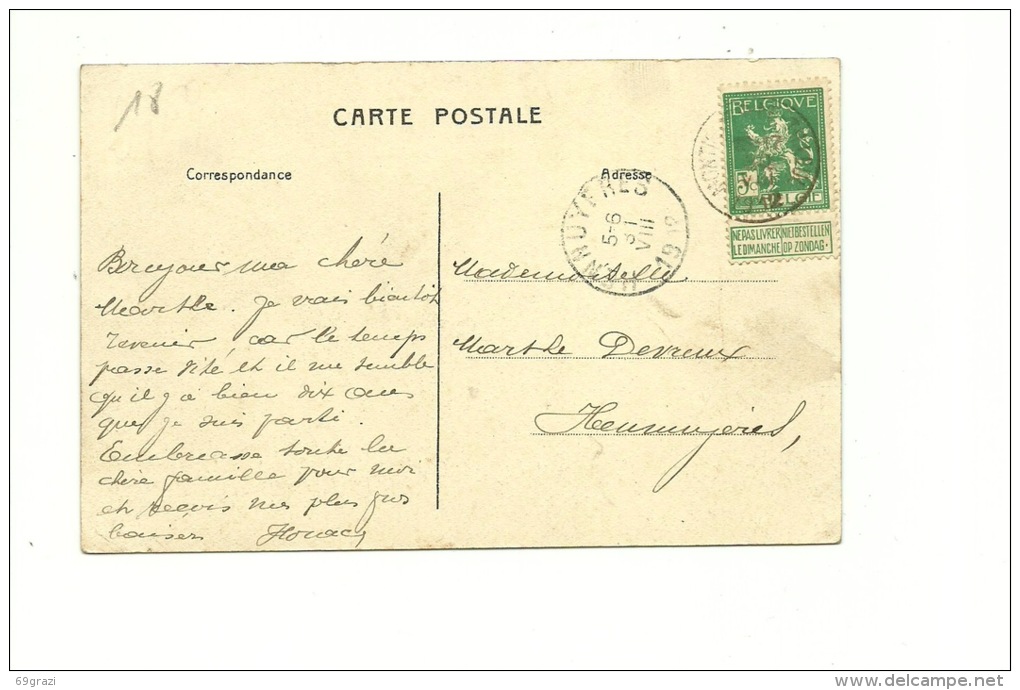 18
CARTE POSTALE
Correspondance
Adresse
BELGIQVE
5 5
BELGIË
NE PAS LIVRER NIET BESTELLEN
LE DIMANCHE OP ZONDAG.
HENNUYÈRES
5-6
31
VIII
1912
Bonjour ma chère
Marthe. Je vais bientôt
revenir car le temps
passe vite et il me semble
qu'il y a bien dix ans
que je suis parti.
Embrasse toute la
chère famille pour moi
et reçois mes plus gros
baisers
Mademoiselle
Marthe Devreux
Hennuyères,
69grazi
www.delcampe.net